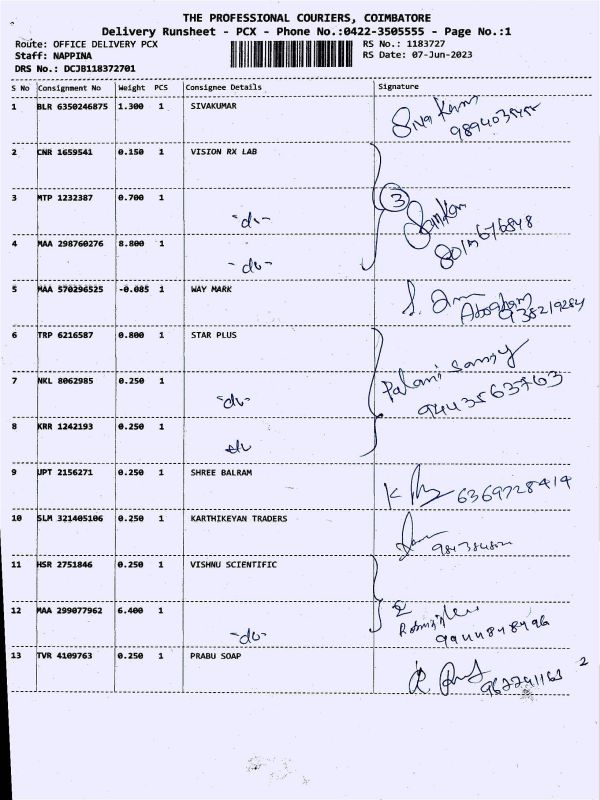 THE PROFESSIONAL COURIERS, COIMBATORE
Delivery Runsheet - PCX - Phone No.:0422-3505555 - Page No.:1
Route: OFFICE DELIVERY PCX RS No.: 1183727
Staff: NAPPINA RS Date: 07-Jun-2023
DRS No.: DCJB118372701
S No Consignment No Weight PCS Consignee Details Signature
1 BLR 6350246875 1.300 1 SIVAKUMAR
2 CNR 1659541 0.150 1 VISION RX LAB
3 MTP 1232387 0.700 1 3
-do-
4 MAA 298760276 8.800 1
-do-
5 MAA 570296525 -0.085 1 WAY MARK
6 TRP 6216587 0.800 1 STAR PLUS
7 NKL 8062985 0.250 1
-do- 9443563763
8 KRR 1242193 0.250 1
do
9 JPT 2156271 0.250 1 SHREE BALRAM
6369728414
10 SLM 321405106 0.250 1 KARTHIKEYAN TRADERS
11 HSR 2751846 0.250 1 VISHNU SCIENTIFIC
12 MAA 299077962 6.400 1 2
-do- 9944848496
13 TVR 4109763 0.250 1 PRABU SOAP